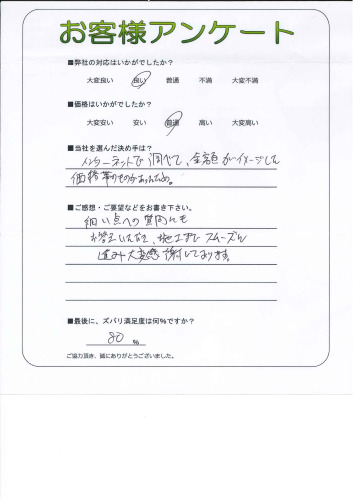 お客様アンケート
■弊社の対応はいかがでしたか？
大変良い 良い 普通 不満 大変不満
■価格はいかがでしたか？
大変安い 安い 普通 高い 大変高い
■当社を選んだ決め手は？
インターネットで調べて、金額がイメージした
価格帯のものがあったため。
■ご感想・ご要望などをお書き下さい。
細い点への質問にも
お答えいただき、施工までスムーズに
進み大変感謝しております。
■最後に、ズバリ満足度は何％ですか？
80 %
ご協力頂き、誠にありがとうございました。